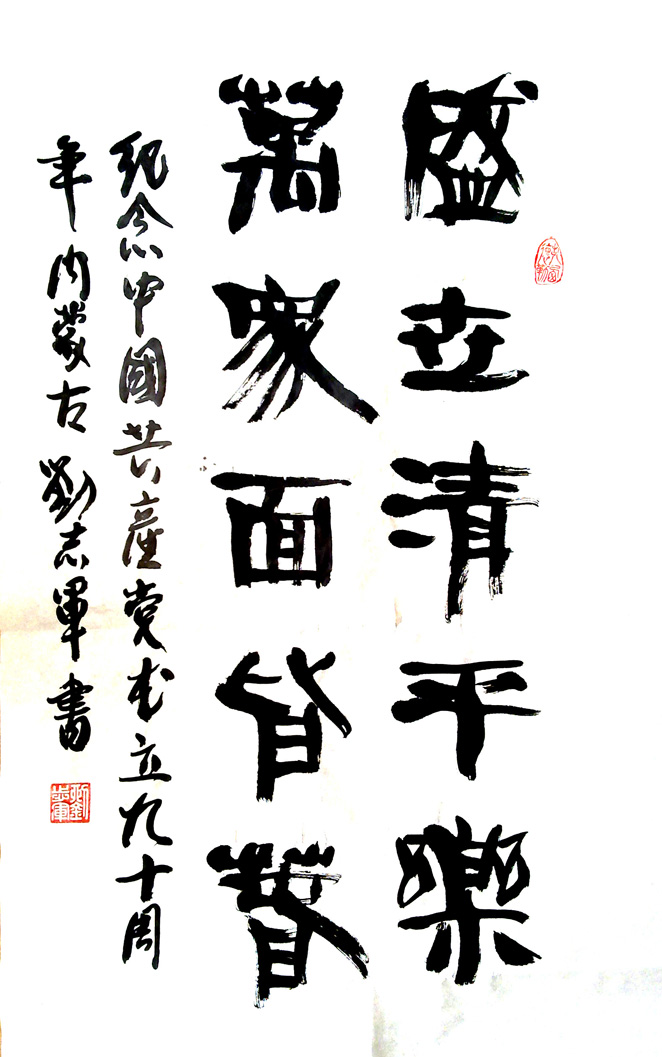 盛世清平樂
萬眾面皆春
紀念中國共產党成立九十周
年内蒙古劉志軍書